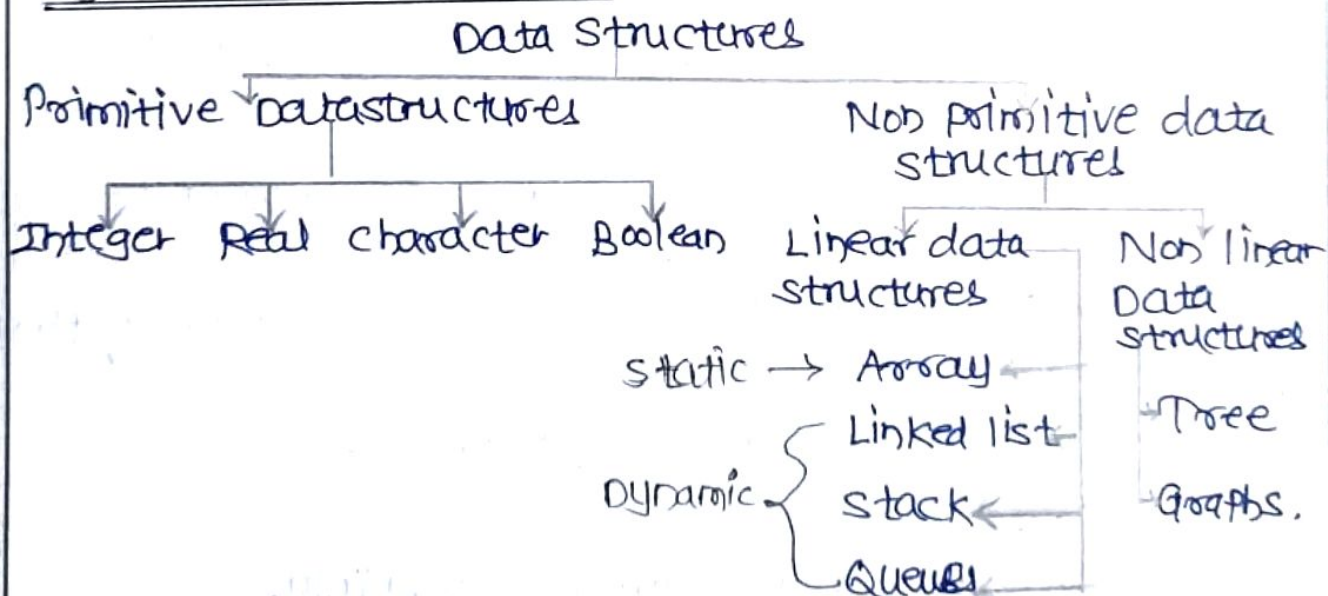 Data Structures
Primitive Datastructures
Non primitive data
structures
Integer Real character Boolean
Linear data
structures
Non linear
Data
structures
static → Array
Linked list
Dynamic
stack
Queues
Tree
Graphs.